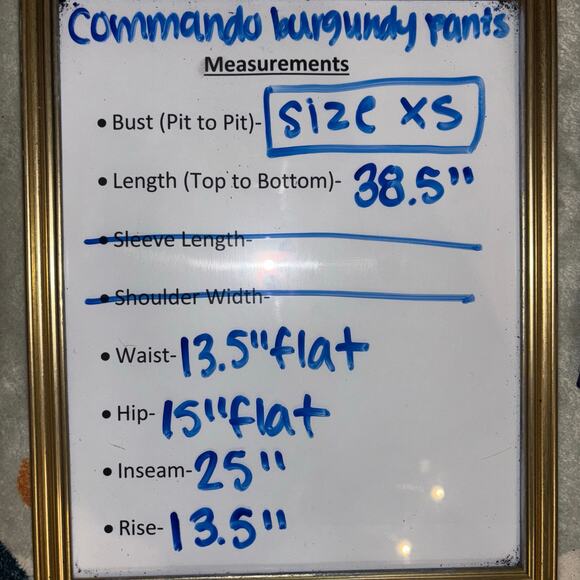 Commando burgundy pants
Measurements
• Bust (Pit to Pit)- Size XS
• Length (Top to Bottom)- 38.5"
• Sleeve Length-
• Shoulder Width-
• Waist- 13.5" flat
• Hip- 15" flat
• Inseam- 25"
• Rise- 13.5"